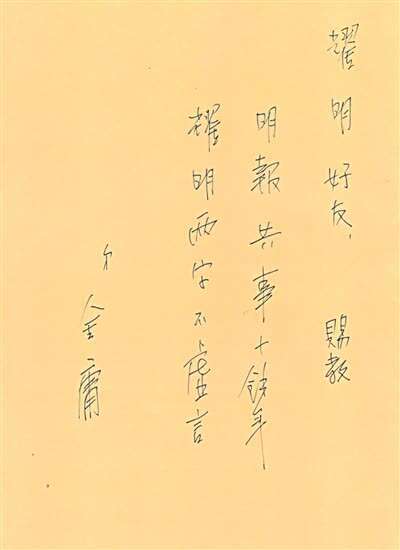 耀明好友, 賜教
明報共事十餘年
耀明兩字不虛言
弟 金庸